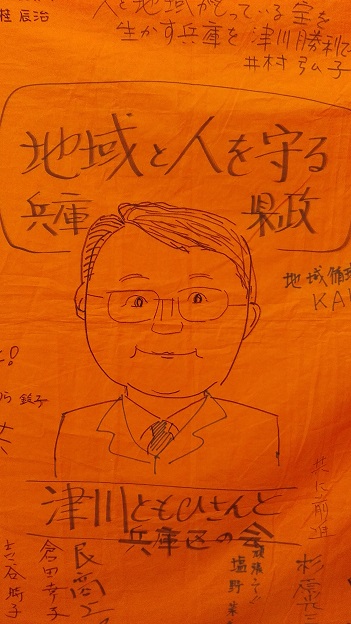 桂 辰治
人と地域がもっている宝を
生かす兵庫を 津川勝利で
井村弘子
地域と人を守る
兵庫 県政
地域循環
KA
鈴子
津川ともひさんと
兵庫区の会
共に前進
杉原
頑張ろう
塩野
民商
倉田幸子